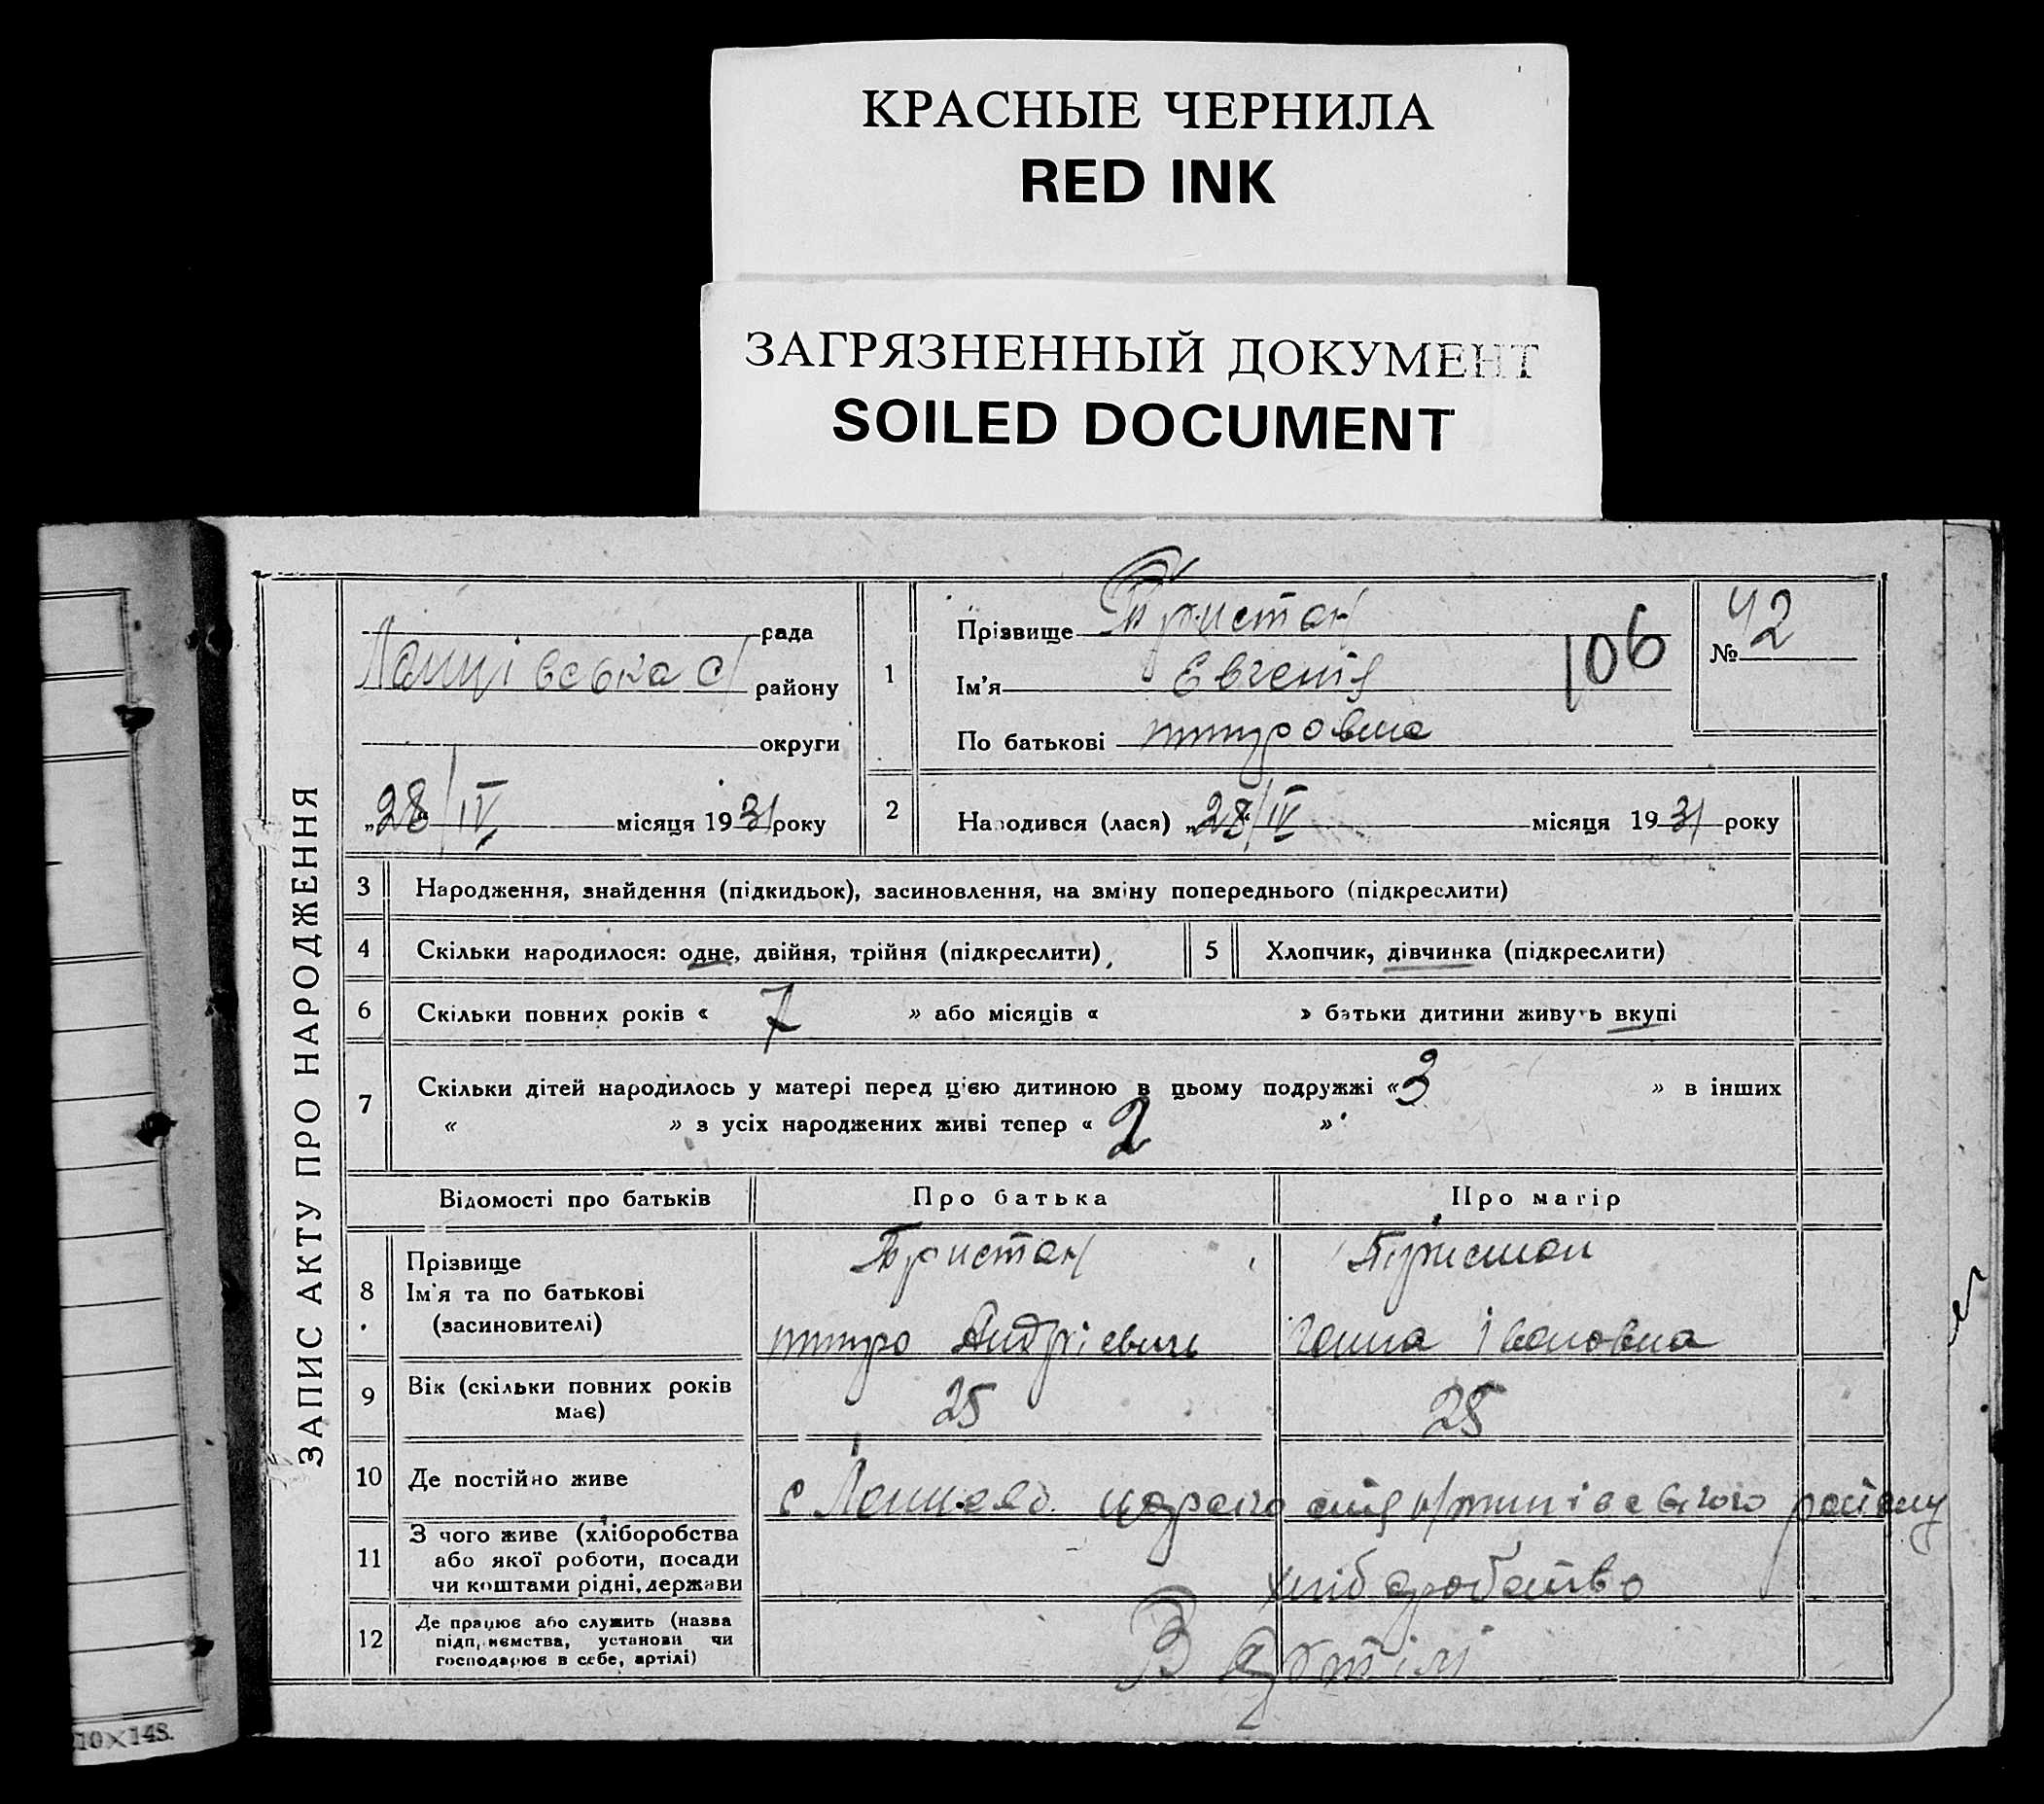 КРАСНЫЕ ЧЕРНИЛА
RED INK
ЗАГРЯЗНЕННЫЙ ДОКУМЕНТ
SOILED DOCUMENT
ЗАПИС АКТУ ПРО НАРОДЖЕННЯ
рада
району
округи
„28“/IV місяця 1931 року
1
Прізвище Тристан
Ім'я Евгенія
По батькові
106
№ 42
2 Народився (лася) „28“/IV місяця 1931 року
3 Народження, знайдення (підкидьок), засиновлення, на зміну попереднього (підкреслити)
4 Скільки народилося: одне, двійня, трійня (підкреслити) 5 Хлопчик, дівчинка (підкреслити)
6 Скільки повних років « 7 » або місяців « » батьки дитини живуть вкупі
7 Скільки дітей народилось у матері перед цією дитиною в цьому подружжі « 3 » в інших
« » з усіх народжених живі тепер « 2 »
Відомості про батьків Про батька Про матір
8 Прізвище
Ім'я та по батькові
(засиновителі)
Тристан Тристан
Андрієвич Ганна Івановна
9 Вік (скільки повних років має) 25 25
10 Де постійно живе с району
11 З чого живе (хліборобства
або якої роботи, посади
чи коштами рідні, держави
хліборобство
12 Де працює або служить (назва
підприємства, установи чи
господарює в себе, артілі)
В артілі
10×148.